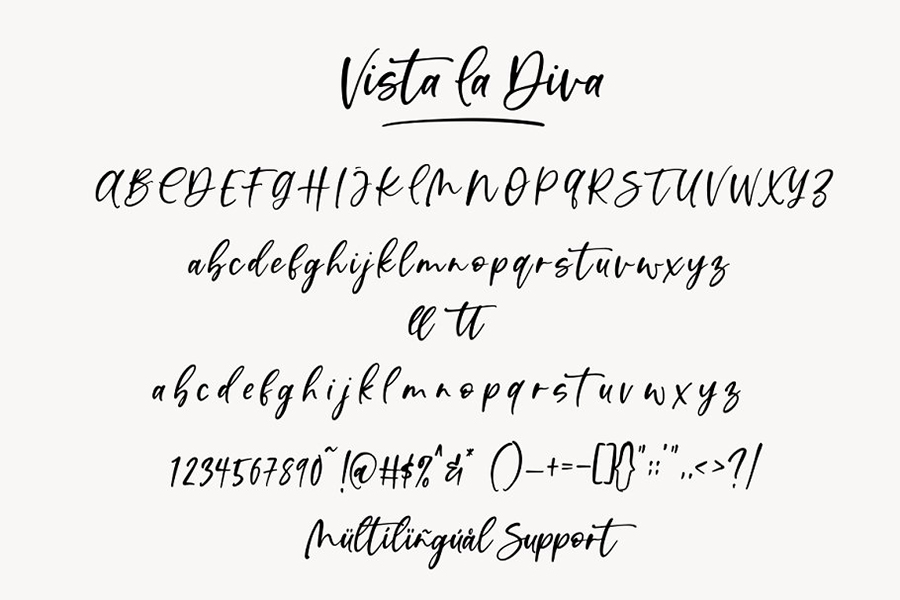 Vista la Diva
ABCDEFGHIJKLMNOPQRSTUVWXYZ
abcdefghijklmnopqrstuvwxyz
ll tt
abcdefghijklmnopqrstuvwxyz
1234567890~!@#$%^&* ()_+=-[]{}"::'",.<>?/
Mültilïñgúål Support